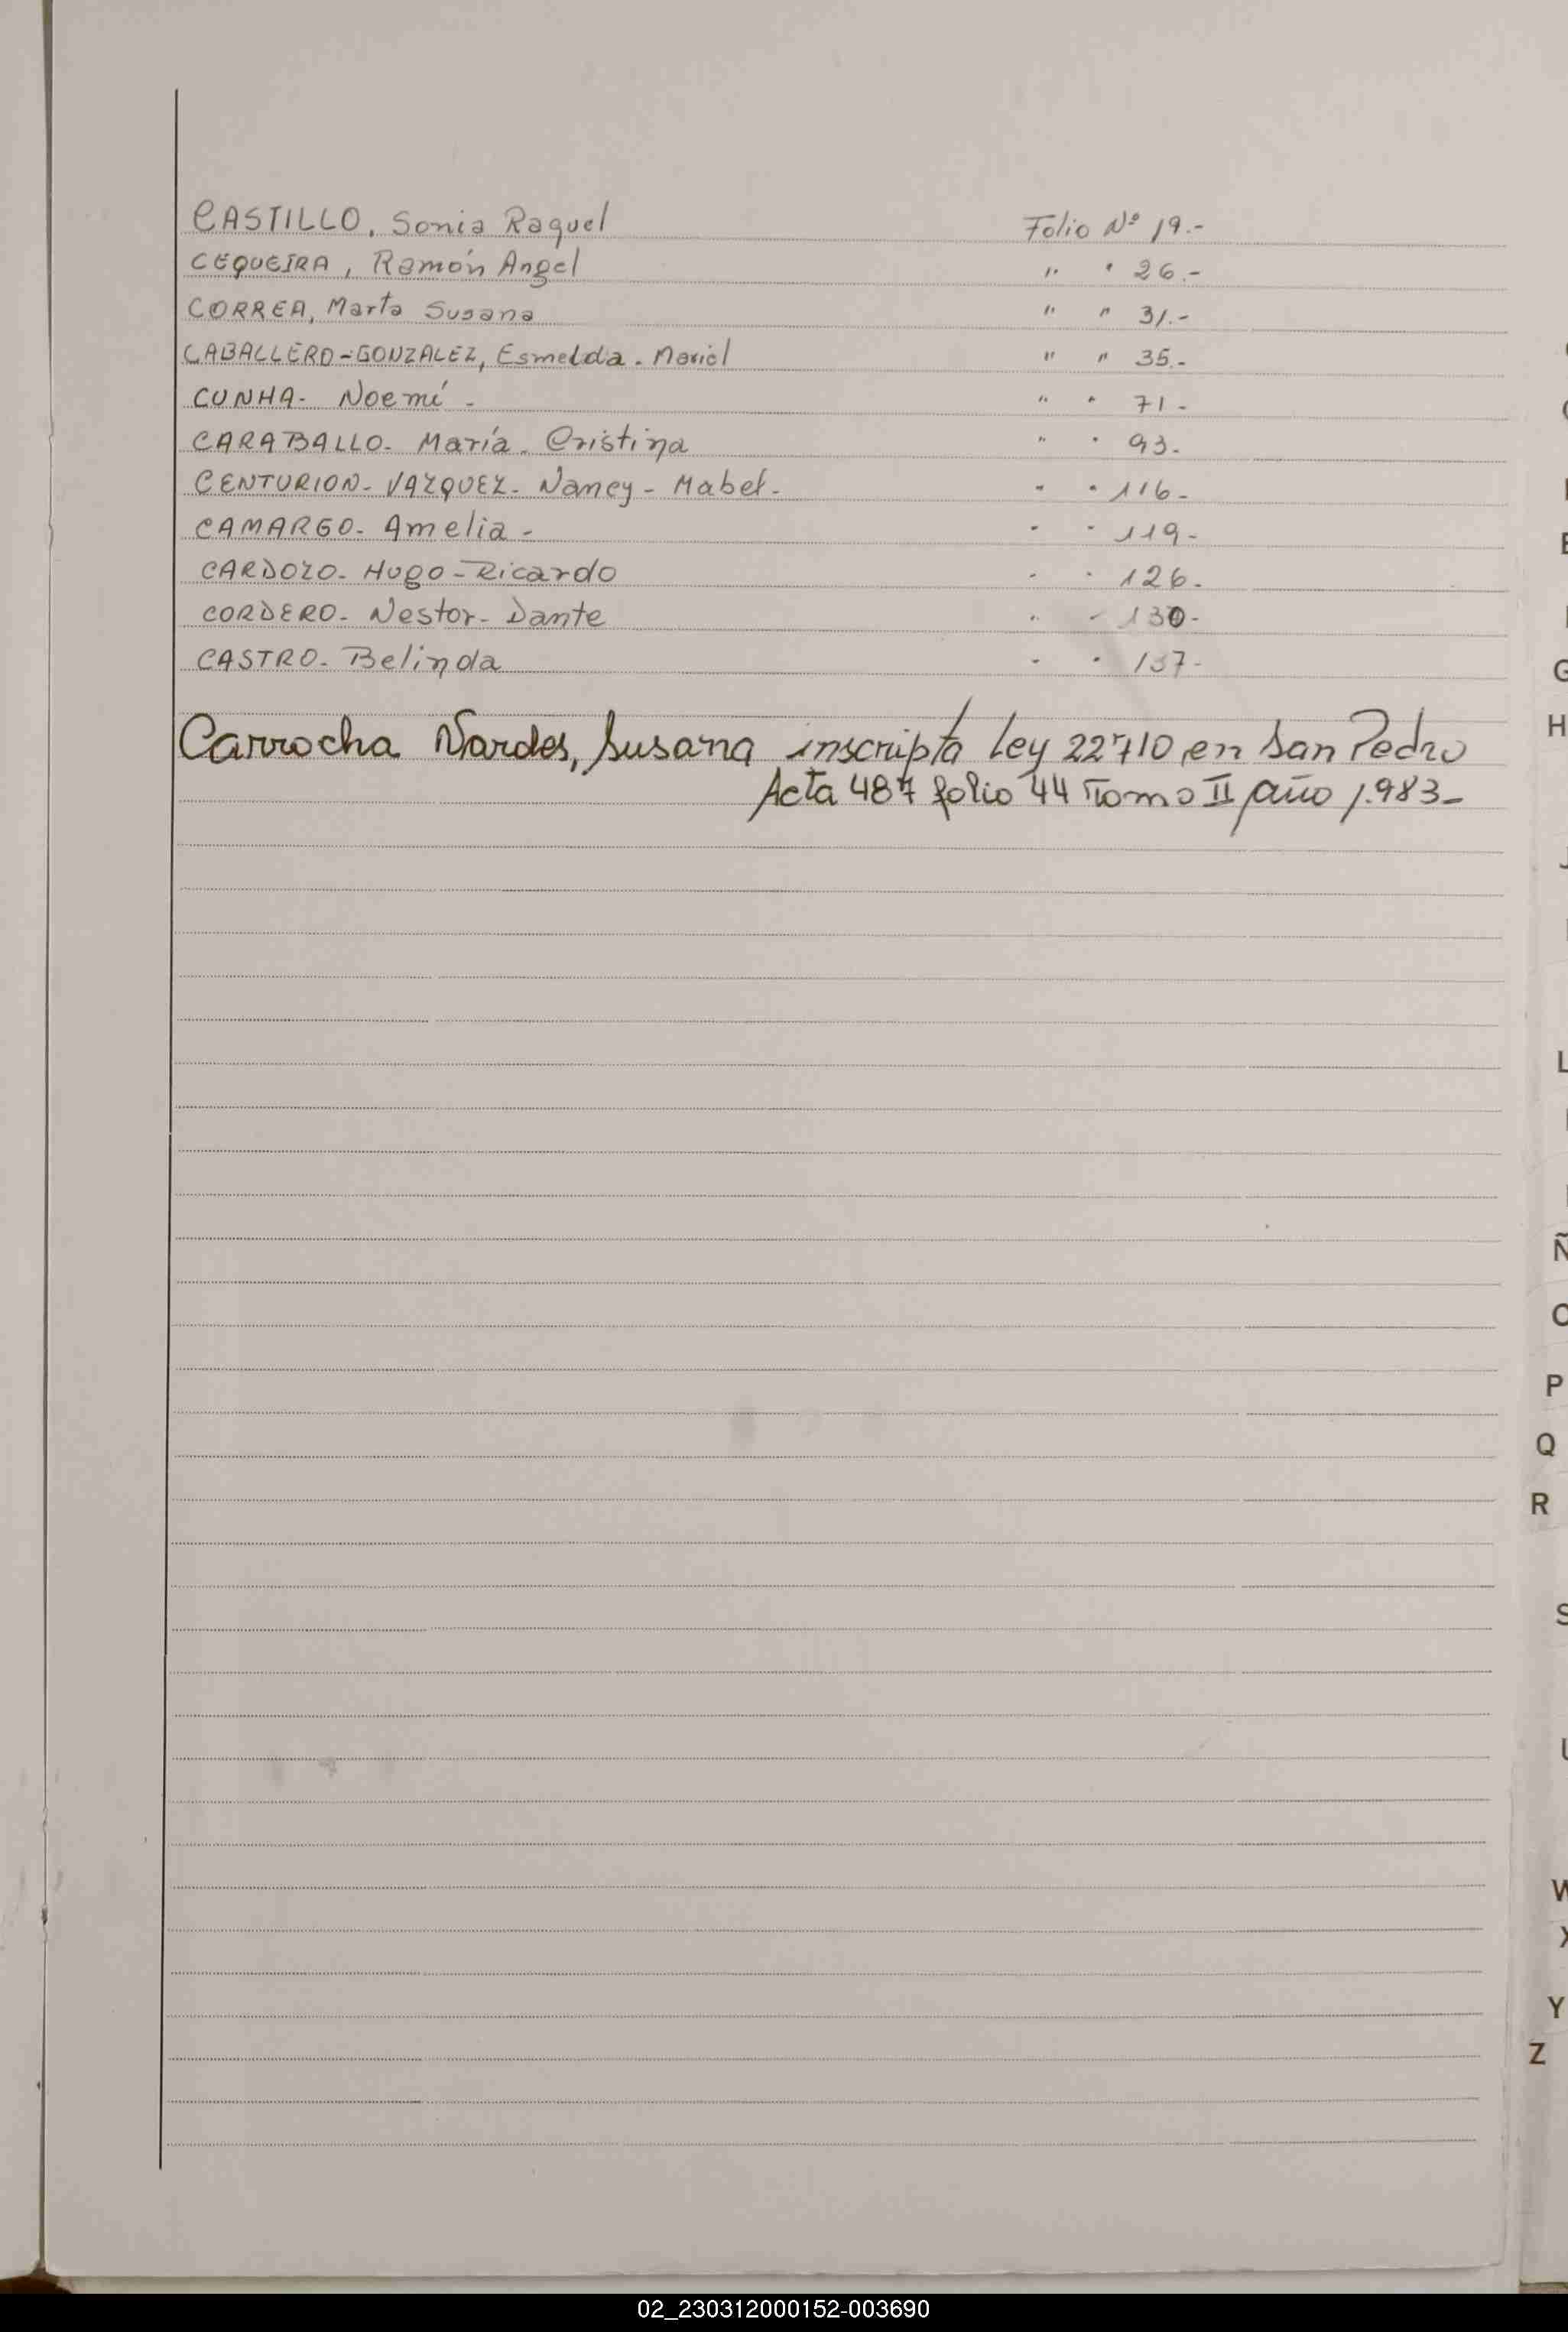 CASTILLO, Sonia Raquel Folio Nº 19.-
CEQUEIRA, Ramón Angel " " 26.-
CORREA, Marta Susana " " 31.-
CABALLERO-GONZALEZ, Esmelda. Mariel " " 35.-
CUNHA- Noemí - " " 71-
CARABALLO- María- Cristina " " 93-
CENTURION- VAZQUEZ- Nancy- Mabel- " " 116-
CAMARGO- Amelia- " " 119-
CARDOZO- Hugo-Ricardo " " 126-
CORDERO- Nestor- Dante " " 130-
CASTRO- Belinda " " 137-
Carrocha Nardes, Susana inscripta Ley 22710, en San Pedro
Acta 487 folio 44 Tomo II año 1.983-
E
G
H
J
L
Ñ
O
P
Q
R
S
U
W
X
Y
Z
02_230312000152-003690